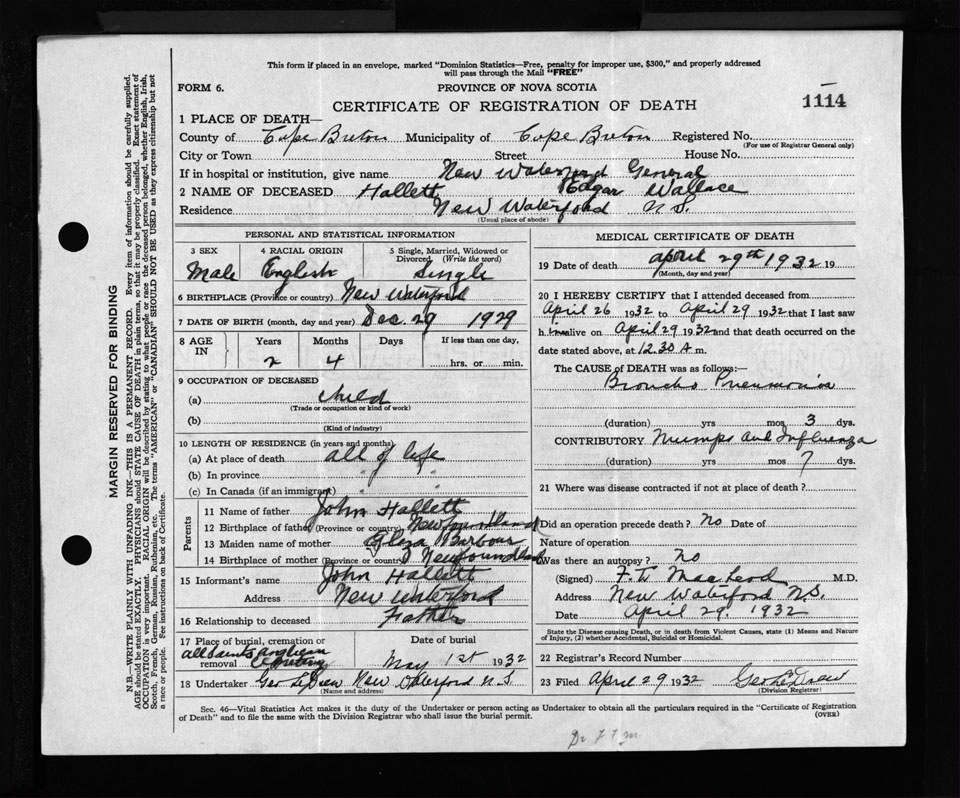 This form if placed in an envelope, marked "Dominion Statistics—Free, penalty for improper use, $300," and properly addressed
will pass through the Mail "FREE"
FORM 6.
PROVINCE OF NOVA SCOTIA
CERTIFICATE OF REGISTRATION OF DEATH
1114
1 PLACE OF DEATH—
County of Cape Breton Municipality of Cape Breton Registered No.
(For use of Registrar General only)
City or Town Street House No.
If in hospital or institution, give name New Waterford General
2 NAME OF DECEASED Hallett Edgar Wallace
Residence New Waterford N.S.
(Usual place of abode)
PERSONAL AND STATISTICAL INFORMATION
3 SEX 4 RACIAL ORIGIN 5 Single, Married, Widowed or
Divorced (Write the word)
Male English Single
6 BIRTHPLACE (Province or country) New Waterford
7 DATE OF BIRTH (month, day and year) Dec. 29 1929
8 AGE IN Years Months Days If less than one day,
2 4 hrs. or min.
9 OCCUPATION OF DECEASED
(a) child
(Trade or occupation or kind of work)
(b)
(Kind of industry)
10 LENGTH OF RESIDENCE (in years and months)
(a) At place of death all of life
(b) In province " "
(c) In Canada (if an immigrant) " "
Parents
11 Name of father John Hallett
12 Birthplace of father (Province or country) Newfoundland
13 Maiden name of mother Barbour
14 Birthplace of mother (Province or country) Newfoundland
15 Informant's name John Hallett
Address New Waterford
16 Relationship to deceased Father
17 Place of burial, cremation or removal Date of burial
All Saints Anglican Cemetery May 1st 1932
18 Undertaker Geo LeDrew New Waterford N S
(Name and address)
MEDICAL CERTIFICATE OF DEATH
19 Date of death April 29th 1932 19
(Month, day and year)
20 I HEREBY CERTIFY that I attended deceased from
April 26 1932 to April 29 1932 that I last saw
h im alive on April 29 1932 and that death occurred on the
date stated above, at 12.30 A m.
The CAUSE of DEATH was as follows:—
Broncho Pneumonia
(duration) yrs mos 3 dys.
CONTRIBUTORY Mumps and Influenza
(duration) yrs mos 7 dys.
21 Where was disease contracted if not at place of death?
Did an operation precede death? no Date of
Nature of operation
Was there an autopsy? no
(Signed) F. W. MacLeod M.D.
Address New Waterford N.S.
Date April 29. 1932
State the Disease causing Death, or in death from Violent Causes, state (1) Means and Nature
of Injury, (2) whether Accidental, Suicidal or Homicidal.
22 Registrar's Record Number
23 Filed April 29 1932 Geo LeDrew
(Division Registrar)
Sec. 46—Vital Statistics Act makes it the duty of the Undertaker or person acting as Undertaker to obtain all the particulars required in the "Certificate of Registration
of Death" and to file the same with the Division Registrar who shall issue the burial permit.
(OVER)
MARGIN RESERVED FOR BINDING
N.B.—WRITE PLAINLY WITH UNFADING INK—THIS IS A PERMANENT RECORD. Every item of information should be carefully supplied.
AGE should be stated EXACTLY. PHYSICIANS should STATE CAUSE OF DEATH in plain terms, so that it may be properly classified. Exact statement of
OCCUPATION is very important. RACIAL ORIGIN will be described by stating to what people or race the deceased person belonged, whether English, Irish,
Scotch, French, German, Russian, Ruthenian, etc. The terms "AMERICAN" or "CANADIAN" SHOULD NOT BE USED as they express citizenship but not
a race or people. See instructions on back of Certificate.